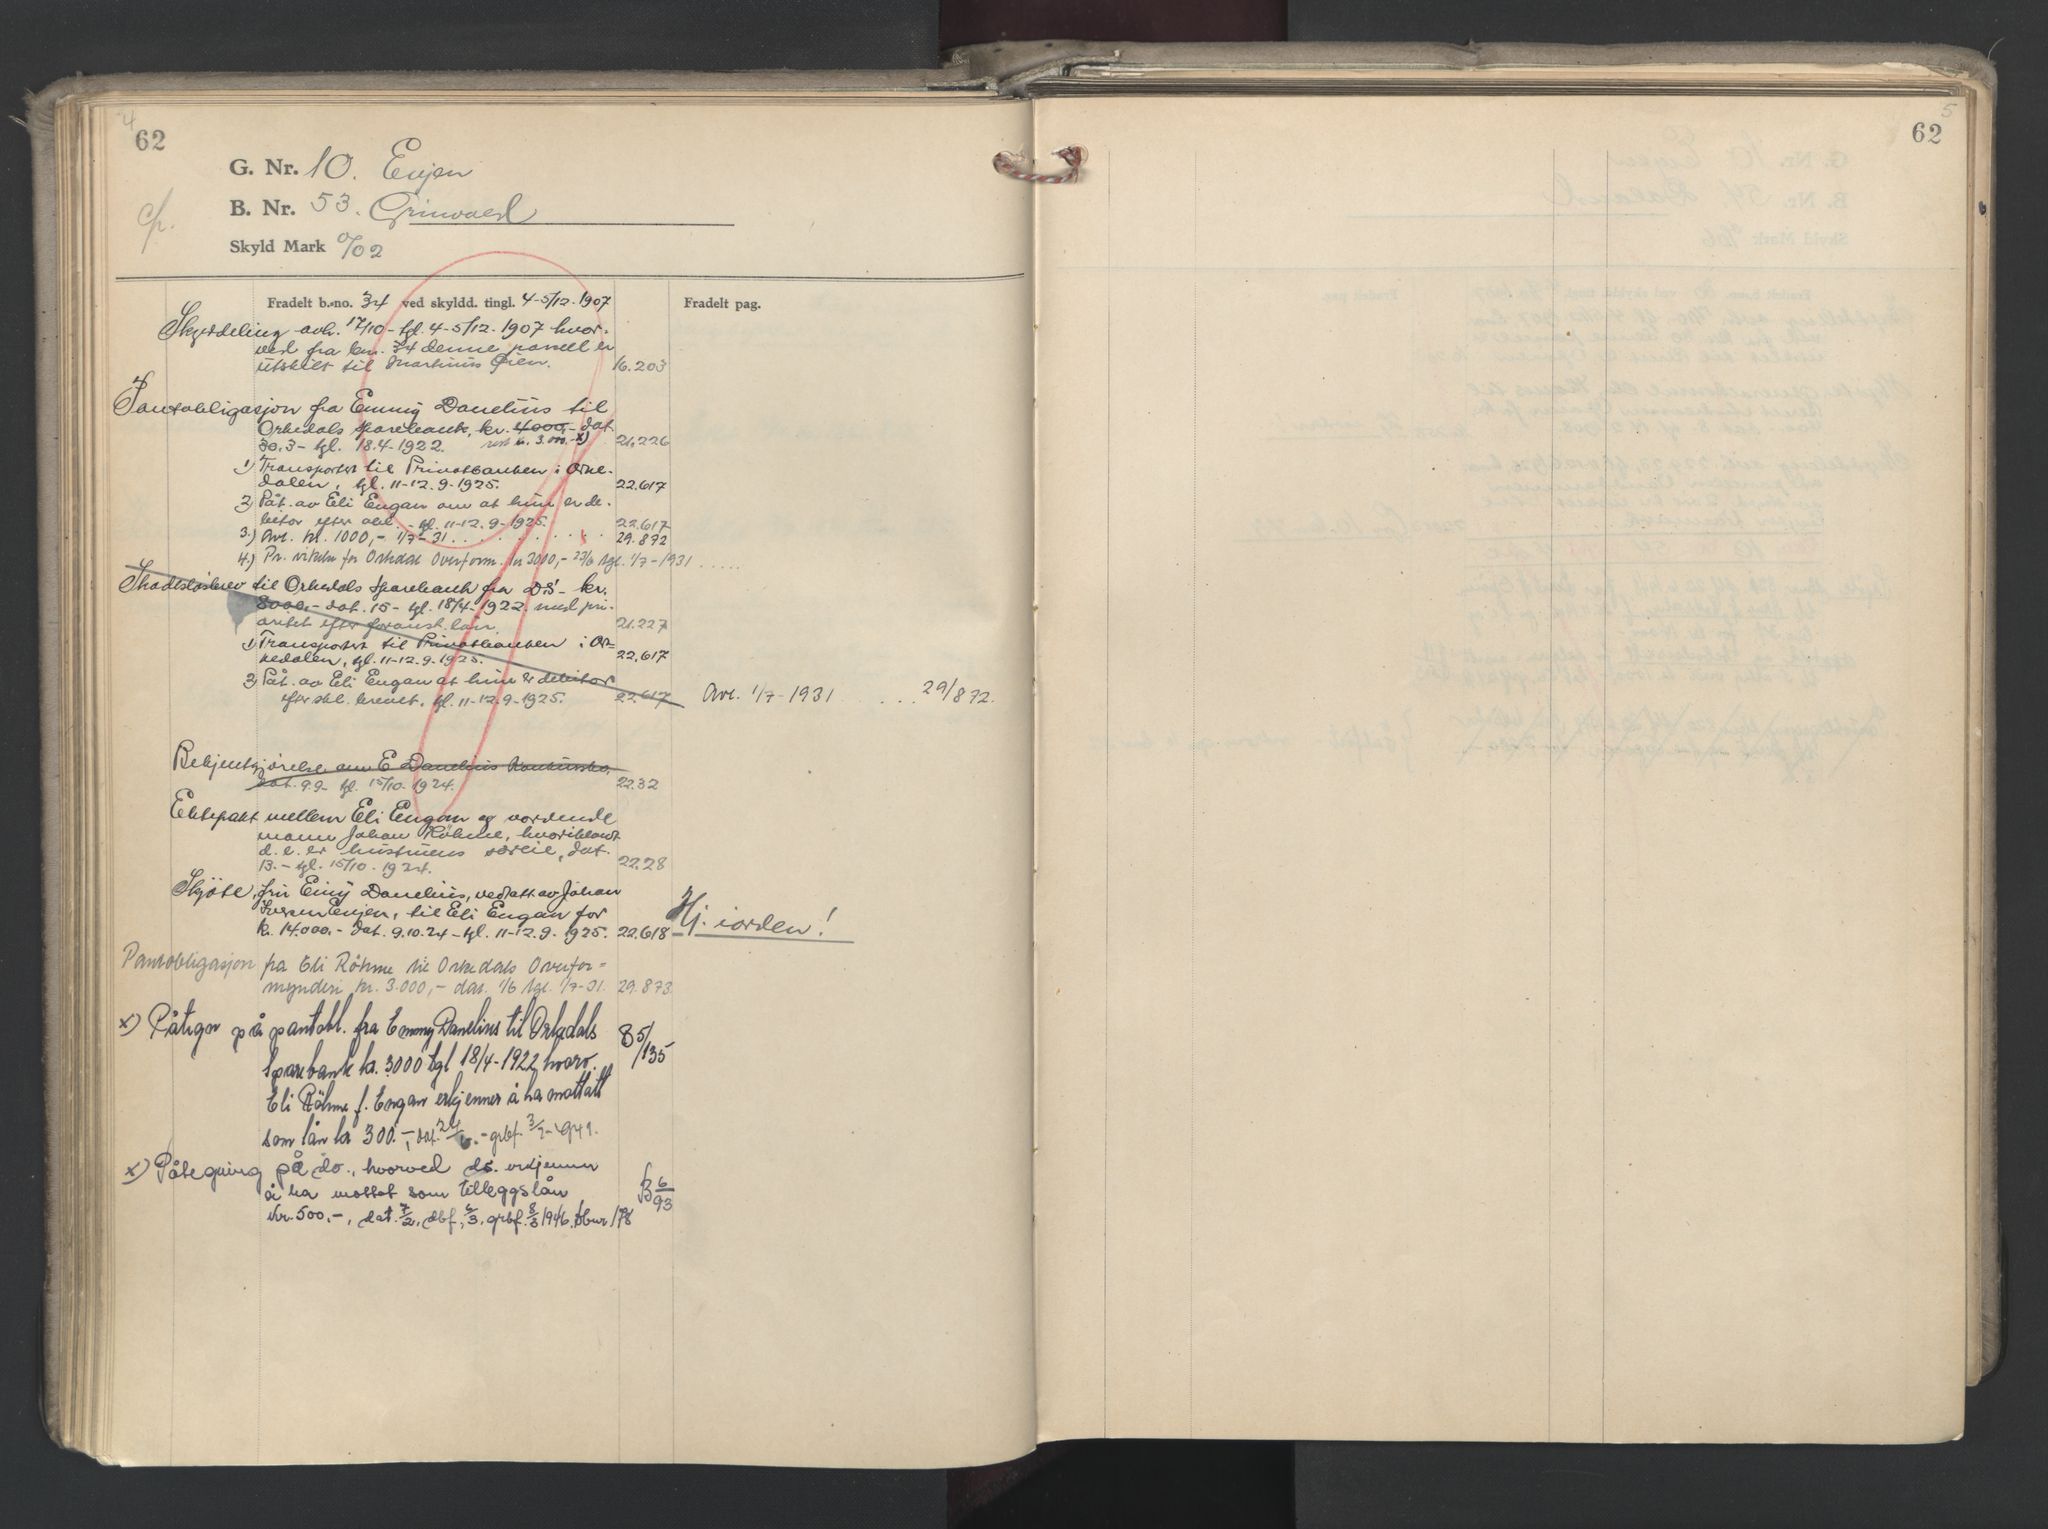 4
62
G. Nr. 10. Evjen
B. Nr. 53. Grinvold
Skyld Mark 0/02
Fradelt b.-no. 34 ved skyldd. tingl. 4-5/12-1907
Fradelt pag.
Skylddeling avh. 17/10 - tgl. 4-5/12-1907 hvor-
ved fra bnr. 34 denne parsell er
utskilt til Martinus Øien. 16.203
Pantobligasjon fra Emmy Danelius til
Orkedals Sparebank, kr. 4000,- dat.
30.3 - tgl. 18.4-1922. rest kr. 3.000.- x) 21.226
1) Transportert til Privatbanken i Orke-
dalen, tgl. 11-12.9-1925. 22.617
2) Påt. av Eli Engan om at hun er de-
bitor efter obl. - tgl. 11-12.9-1925. 22.617
3.) Avl. kr. 1000,- 1/7-31 . . . . . 29.872
4.) Pr. vikelse for Orkedal Overform. kr 3000,- 23/6 tgl. 1/7-1931 . . . . .
Skadesløsbrev til Orkedals Sparebank fra D.S. kr.
8000.- dat. 15 - tgl. 18/4-1922 med pri-
oritet efter foranst. lån. 21.227
1) Transportert til Privatbanken i Or-
kedalen, tgl. 11-12.9-1925. 22.617
2) Påt. av Eli Engan at hun er debitor
efter skl. brevet. tgl. 11-12.9-1925. 22.617 Avl. 1/7-1931 . . . . 29/872.
Bekjentgjørelse om E Danelius Konkursbo,
dat. 9.9 - tgl. 15/10-1924. 22.32
Ektepakt mellem Eli Engan og vordende
mann Johan Röhme, hvoriblandt
d. e. er hustruens særeie, dat.
13. - tgl. 15/10-1924. 22.28
Skjöte, fru Emy Danelius, vedtatt av Johan
Iversen Evjen, til Eli Engan for
kr. 14.000.- dat. 9.10.24 - tgl. 11-12.9-1925. 22.618 Hj. iorden!
Pantobligasjon fra Eli Röhme til Orkedals Overfor-
mynderi kr. 3.000,- dat. 1/6 tgl. 1/7-31. 29.873
x) Påtegn på pantobl. fra Emmy Danelius til Orkedals 85/135
Sparebank kr. 3000 tgl 18/4-1922, hvorv.
Eli Röhme f. Engan erkjenner å ha mottatt
som lån kr 300.-, dat. grbf.
x) Påtegning på do., hvorved ds. erkjenner
å ha mottat som tilleggslån B 6/93
kr. 500.-, dat. 7/2, dbf. 5/3. grbf. 8/3 1946.
62
5